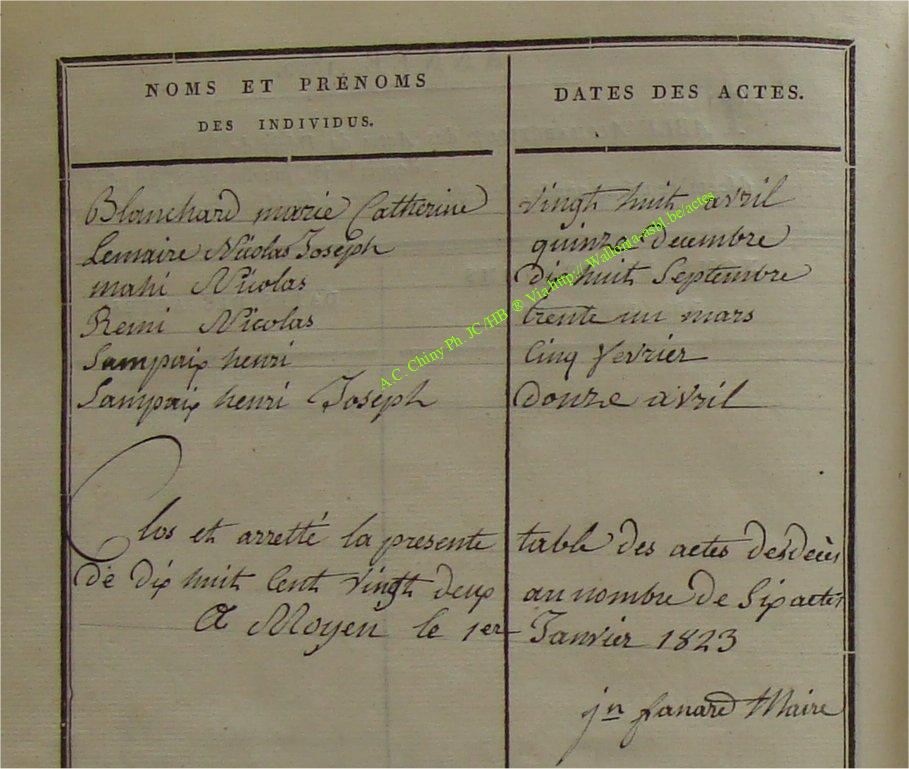 NOMS ET PRÉNOMS
DES INDIVIDUS.
DATES DES ACTES.
Blanchard marie Catherine vingt huit avril
Lemaire Nicolas Joseph quinze decembre
mahi Nicolas dix huit Septembre
Remi Nicolas trente un mars
Sampaix henri Cinq fevrier
Sampaix henri Joseph douze avril
A.C. Chiny Ph. JC/HB ® Via http://Wallonia-asbl.be/actes
Clos et arretté la presente table des actes des decès
de dix huit Cent vingt deux au nombre de Six actes
A Moyen le 1er Janvier 1823
jn fanard Maire